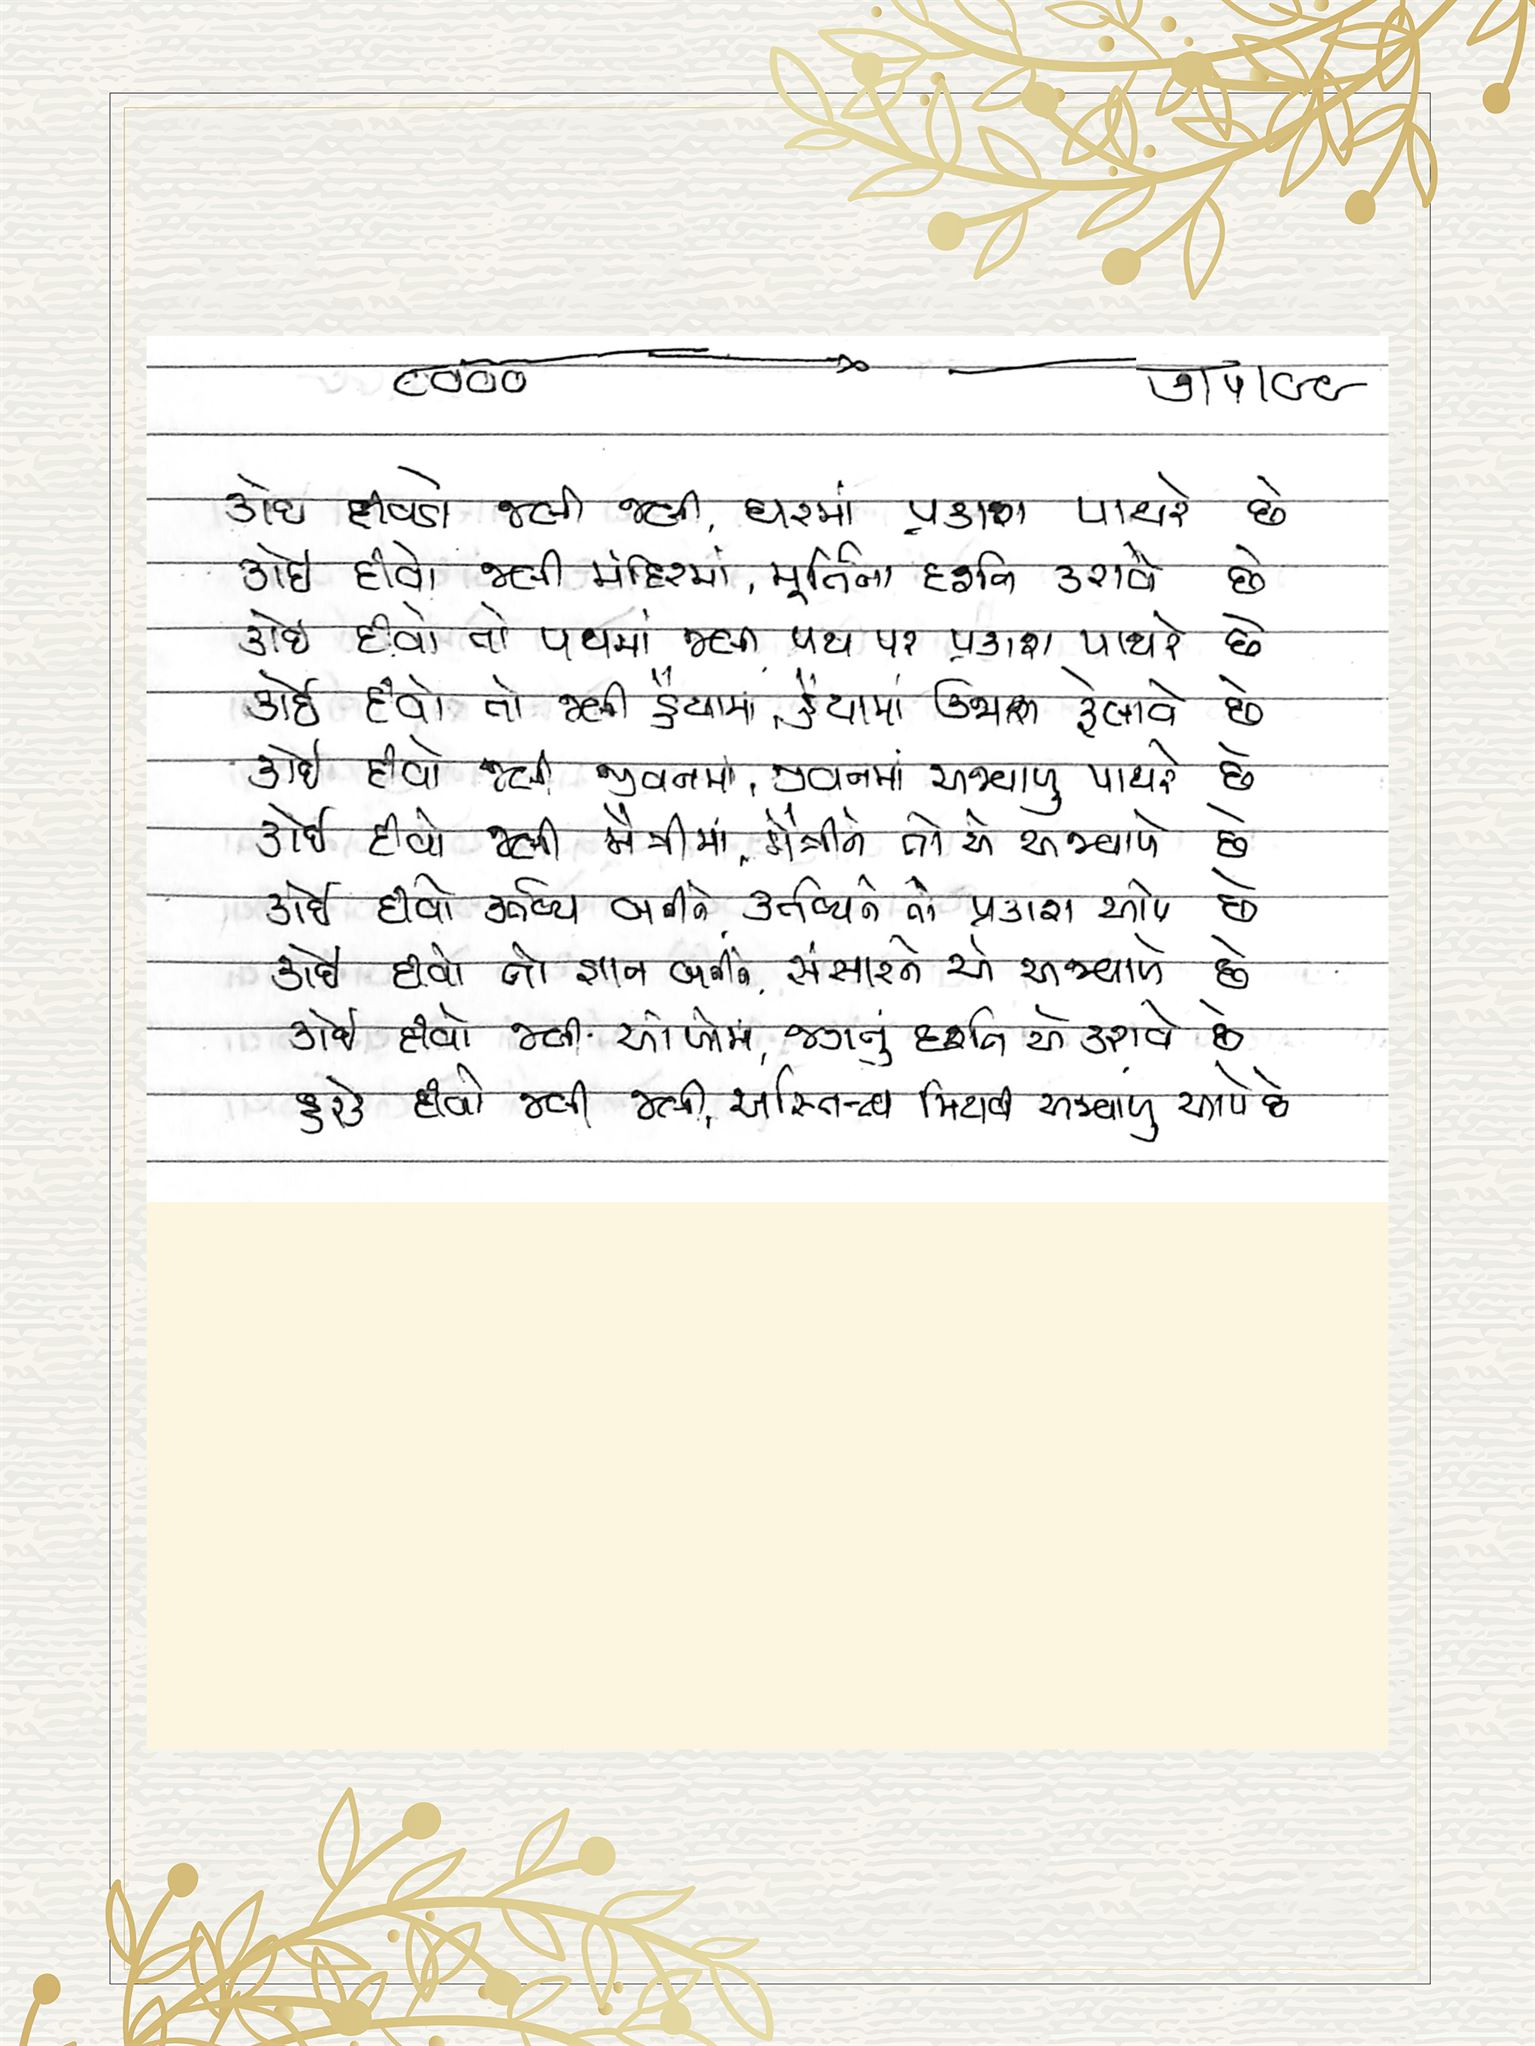 ૯૦૦૦ ૭/૫/૯૯
કોઈ દીવડો જલી જલી, ઘરમાં પ્રકાશ પાથરે છે
કોઈ દીવો જલી મંદિરમાં, મૂર્તિના દર્શન કરાવે છે
કોઈ દીવો તો પથમાં જલી, પથ પર પ્રકાશ પાથરે છે
કોઈ દીવો તો જલી હૈયામાં, હૈયામાં ઉજાશ રેલાવે છે
કોઈ દીવો જલી જીવનમાં, જીવનમાં અજવાળુ પાથરે છે
કોઈ દીવો જલી મૈત્રીમાં, મૈત્રીને તો એ અજવાળે છે
કોઈ દીવો કર્તવ્ય બનીને, કર્તવ્યને તો પ્રકાશ આપે છે
કોઈ દીવો તો જ્ઞાન બનીને, સંસારને એ અજવાળે છે
કોઈ દીવો જલી આંખોમાં, જગનું દર્શન એ કરાવે છે
હરેક દીવો જલી જલી, અસ્તિત્વ મિટાવી અજવાળુ આપે છે